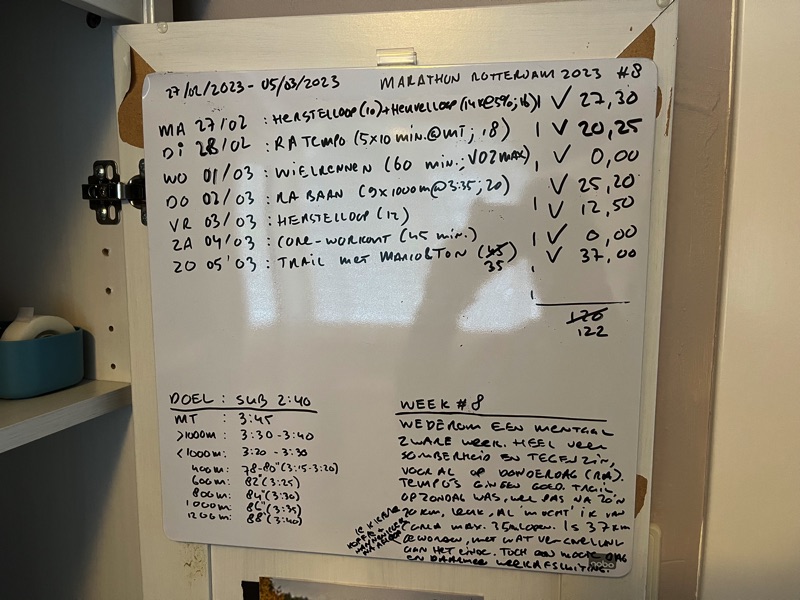 27/02/2023 - 05/03/2023 MARATHON ROTTERDAM 2023 #8
MA 27/02 : HERSTELLOOP (10) + HEUVELLOOP (14x@5%; 16) V 27,30
DI 28/02 : RA TEMPO (5x10 MIN.@MT; 18) V 20,25
WO 01/03 : WIELRENNEN (60 MIN.; VO2MAX) V 0,00
DO 02/03 : RA BAAN (9x1000M@3:35; 20) V 25,20
VR 03/03 : HERSTELLOOP (12) V 12,50
ZA 04/03 : CORE-WORKOUT (45 MIN.) V 0,00
ZO 05/03 : TRAIL MET MARIO&TON (45) V 37,00
35
120
122
DOEL : SUB 2:40
MT : 3:45
>1000M : 3:30 - 3:40
<1000M : 3:20 - 3:30
400M : 78-80" (3:15-3:20)
600M : 82" (3:25)
800M : 84" (3:30)
1000M : 86" (3:35)
1200M : 88" (3:40)
WEEK #8
WEDEROM EEN MENTAAL
ZWARE WEEK. HEEL VEEL
SOMBERHEID EN TEGENZIN,
VOORAL OP DONDERDAG (RA).
TEMPO'S GINGEN GOED. TRAIL
OP ZONDAG WAS, WEL PAS NA ZO'N
20 KM, LEUK, AL 'MOCHT' IK VAN
MAX. 35 KLOPEN. IS 37 KM
GEWORDEN, MET WAT VERSNELLING
AAN HET EINDE. TOCH EEN MOOIE DAG
EN DAARMEE WEEKAFSLUITING.
nobo